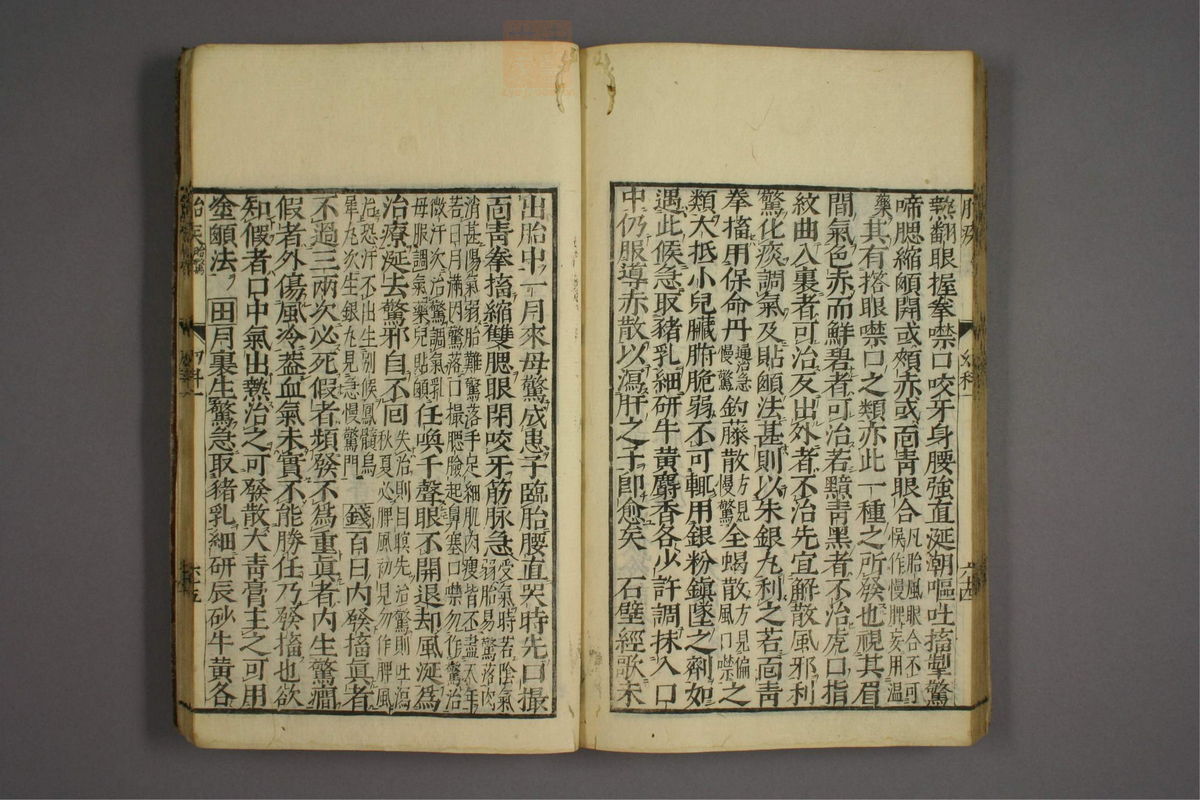 熱翻眼握拳噤口咬牙身腰強直涎潮嘔吐搐掣驚
啼腮縮顖開或頰赤或面青眼合凡胎風眼合不可悞作慢脾妄用溫
藥其有搭眼噤口之類亦此一種之所發也視其眉
間氣色赤而鮮碧者可治若黯青黑者不治虎口指
紋曲入裏者可治反出外者不治先宜解散風邪利
驚化痰調氣及貼顖法甚則以朱銀丸利之若面青
拳搐用保命丹通治急慢驚鈞藤散方見慢驚全蝎散方見偏風口噤之
類大抵小兒臟腑脆弱不可輒用銀粉鎮墜之劑如
遇此候急取豬乳細研牛黃麝香各少許調抹入口
中仍服導赤散以瀉肝之子即愈矣 石壁經歌未
出胎中一月來母驚成患子臨胎腰直哭時先口撮
面青拳搐縮雙腮眼閉咬牙筋脉急受氣時若陰氣弱胎易驚落內
消甚陽氣弱胎難驚落手足細肌肉瘦皆不盡天年
若日月滿因驚落口撮腮臉起鼻塞口噤勿作驚治
微汗次治驚調氣乳
母服調氣藥兒貼顖任喚千聲眼不開退却風涎爲
治療涎去驚邪自不回秋夏必脾風初見勿作脾風失治則目瞑先治驚則吐瀉
治恐汗不出生別候鳳髓烏
犀丸次生銀丸見急慢驚門錢百日內發搐眞者
不過三兩次必死假者頻發不爲重眞者內生驚癎
假者外傷風冷蓋血氣未實不能勝任乃發搐也欲
知假者口中氣出熱治之可發散大青膏主之可用
塗顖法田月裏生驚急取豬乳細研辰砂牛黃各
胎疾
幼科一
六十五